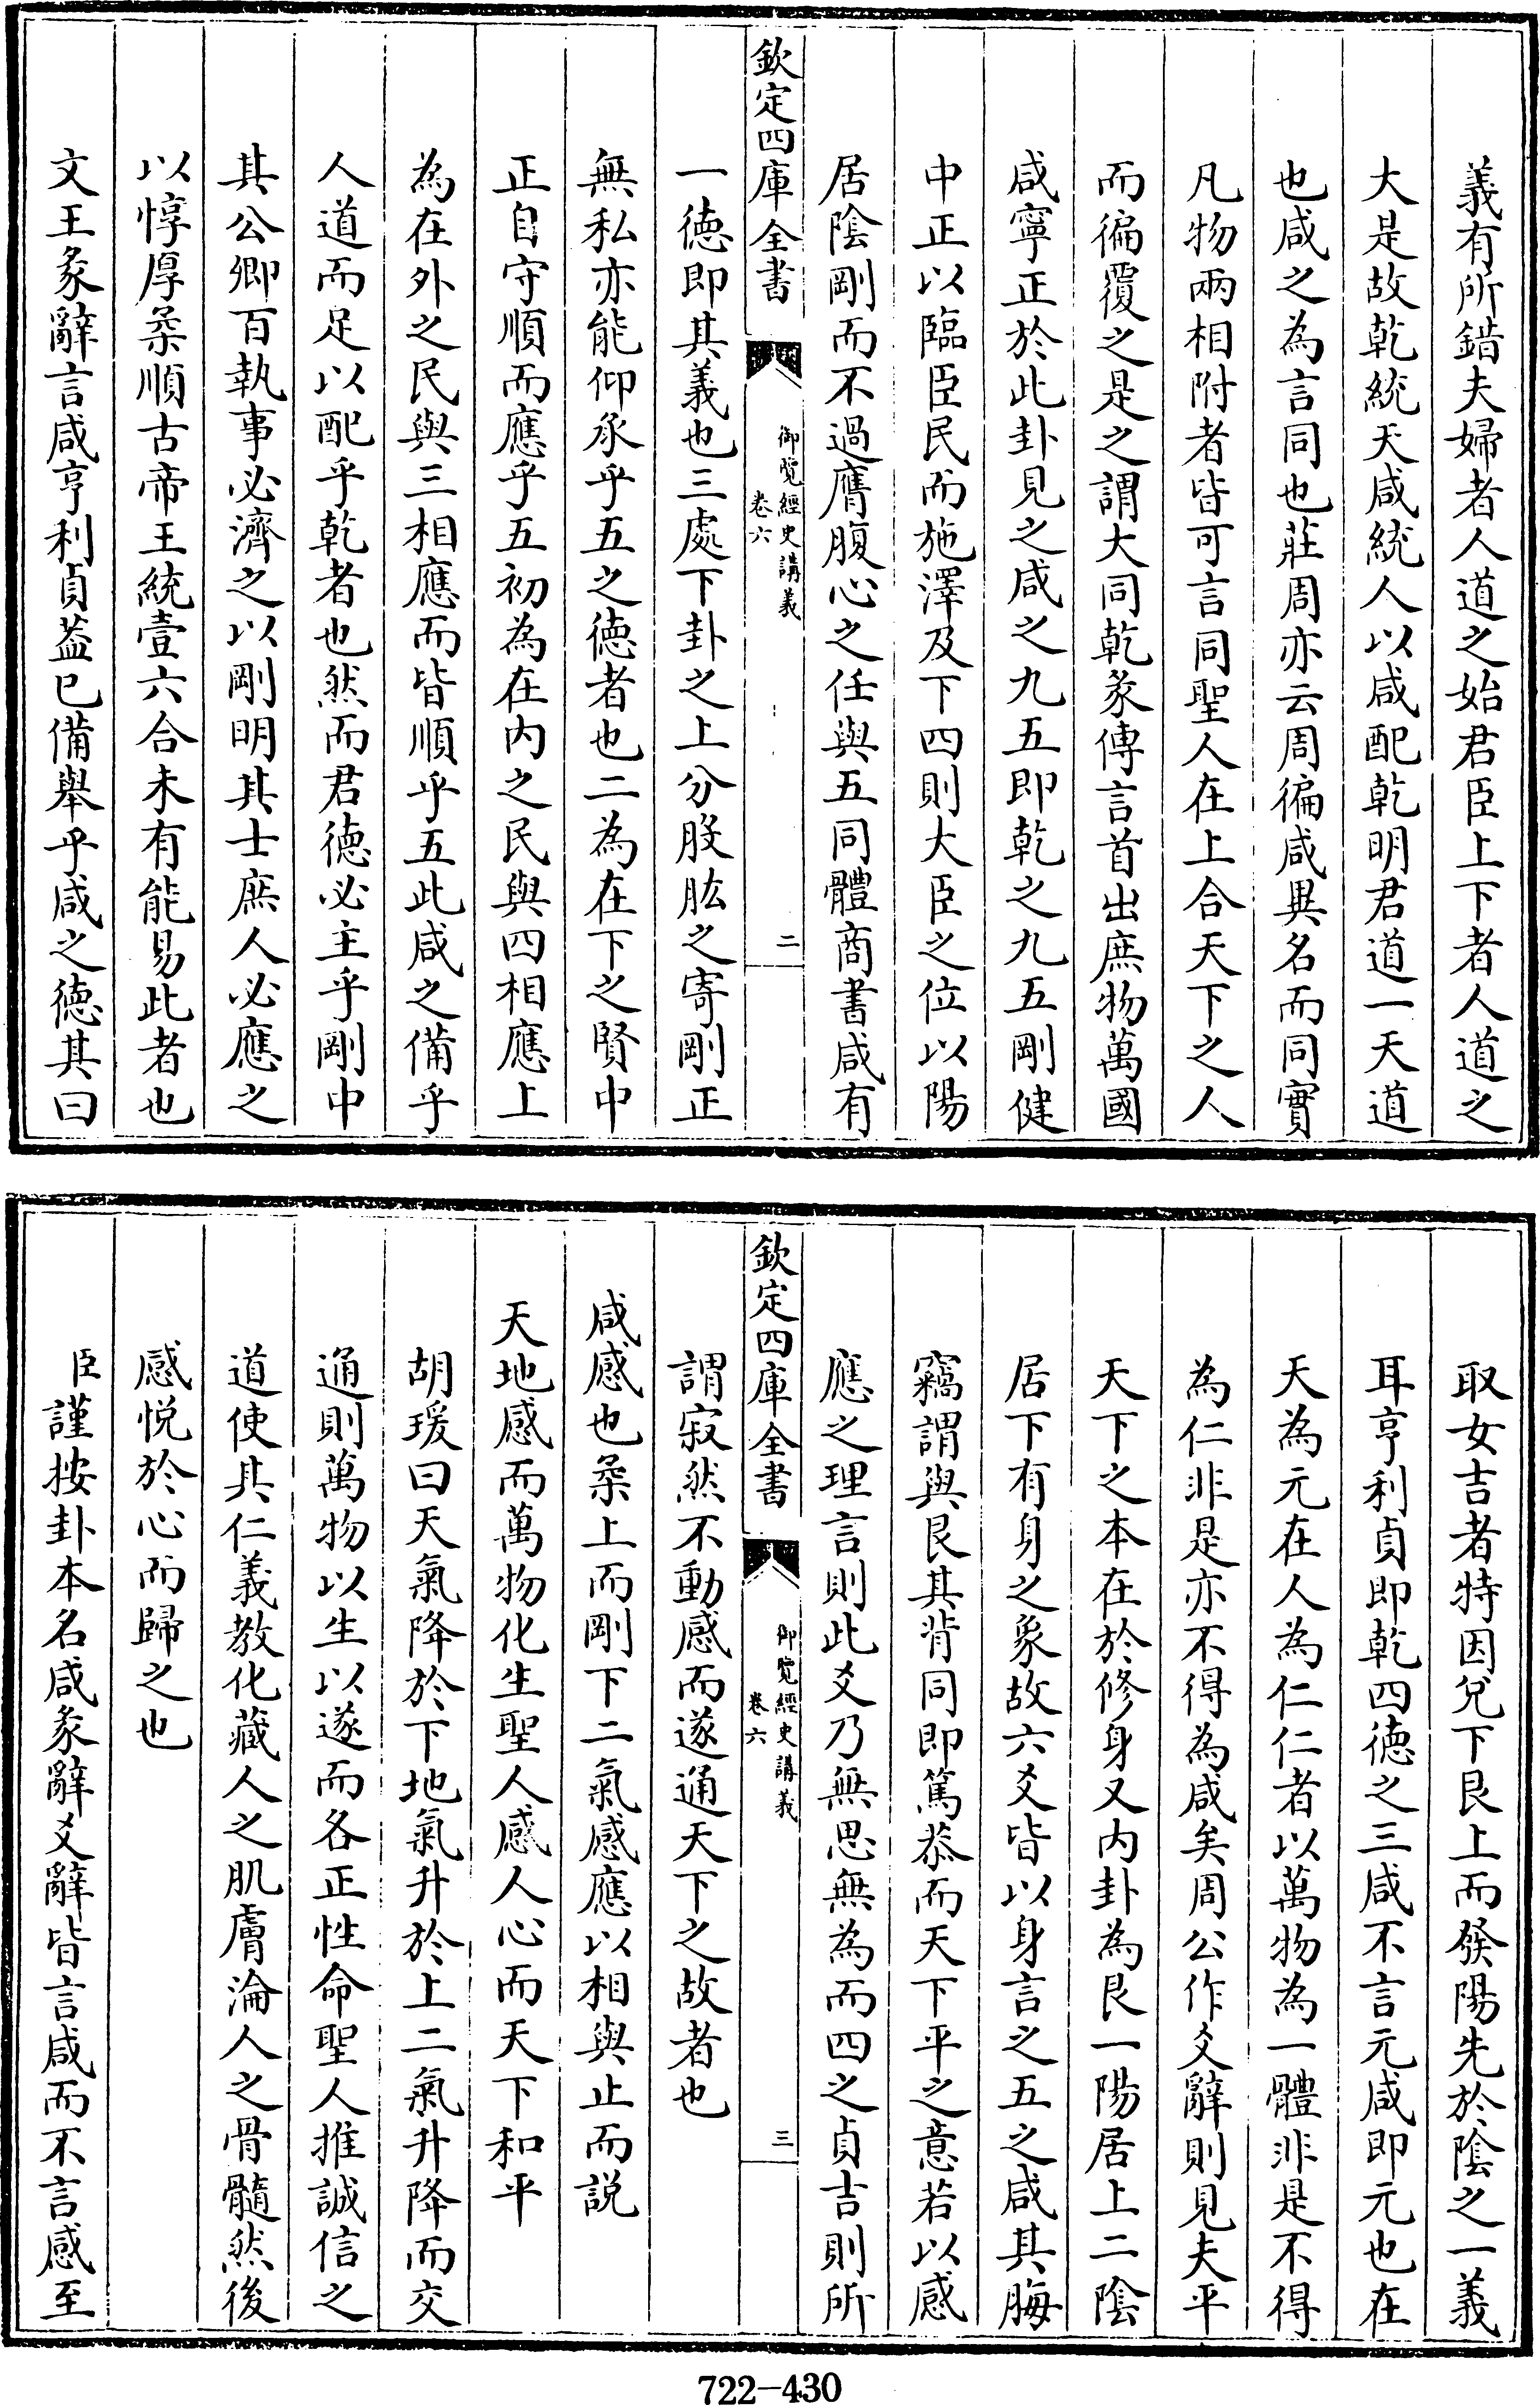 義有所錯夫婦者人道之始君臣上下者人道之
大是故乾統天咸統人以咸配乾明君道一天道
也咸之為言同也莊周亦云周徧咸異名而同實
凡物兩相附者皆可言同聖人在上合天下之人
而徧覆之是之謂大同乾彖傳言首出庶物萬國
咸寧正於此卦見之咸之九五即乾之九五剛健
中正以臨臣民而施澤及下四則大臣之位以陽
居陰剛而不過膺腹心之任與五同體商書咸有
欽定四庫全書
御覽經史講義
卷六
二
一徳即其義也三處下卦之上分股肱之寄剛正
無私亦能仰承乎五之徳者也二為在下之賢中
正自守順而應乎五初為在内之民與四相應上
為在外之民與三相應而皆順乎五此咸之備乎
人道而足以配乎乾者也然而君徳必主乎剛中
其公卿百執事必濟之以剛明其士庶人必應之
以惇厚柔順古帝王統壹六合未有能易此者也
文王彖辭言咸亨利貞葢已備舉乎咸之徳其曰
取女吉者特因兌下艮上而發陽先於陰之一義
耳亨利貞即乾四徳之三咸不言元咸即元也在
天為元在人為仁仁者以萬物為一體非是不得
為仁非是亦不得為咸矣周公作爻辭則見夫平
天下之本在於修身又内卦為艮一陽居上二陰
居下有身之象故六爻皆以身言之五之咸其脢
竊謂與艮其背同即篤恭而天下平之意若以感
應之理言則此爻乃無思無為而四之貞吉則所
欽定四庫全書
御覽經史講義
卷六
三
謂寂然不動感而遂通天下之故者也
咸感也柔上而剛下二氣感應以相與止而説
天地感而萬物化生聖人感人心而天下和平
胡瑗曰天氣降於下地氣升於上二氣升降而交
通則萬物以生以遂而各正性命聖人推誠信之
道使其仁義教化藏人之肌膚淪人之骨髓然後
感悦於心而歸之也
臣謹按卦本名咸彖辭爻辭皆言咸而不言感至
722-430